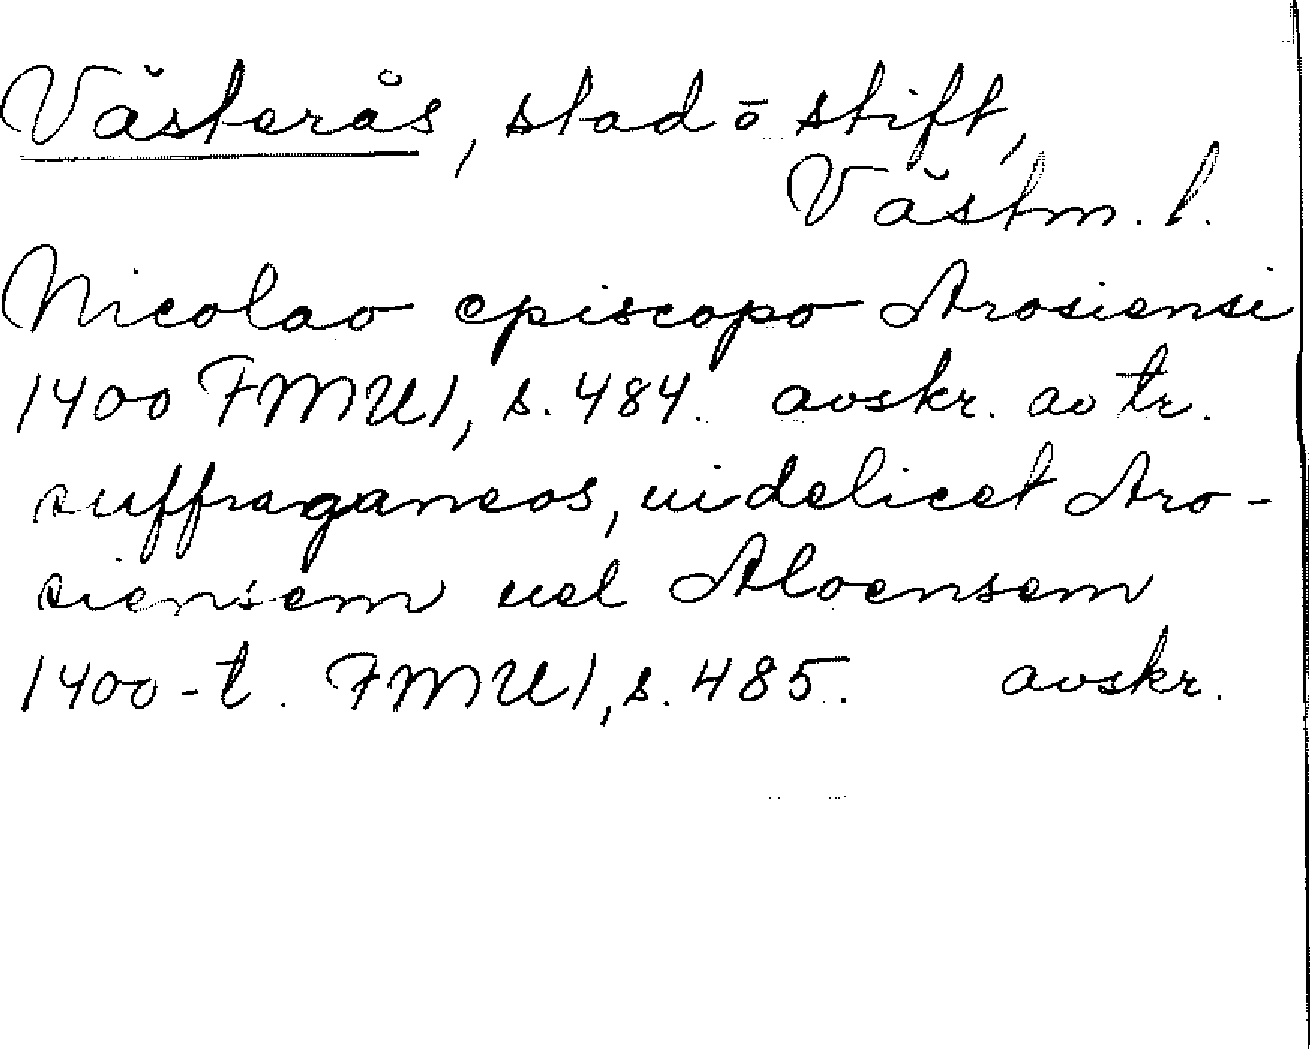 Västerås, stad ō stift,
Västm. l.
Nicolao episcopo Arosiensi
1400 FMU 1, s. 484. avskr. av tr.
suffraganeos, uidelicet Aro-
siensem uel Aloensem
1400-t. FMU 1, s. 485. avskr.